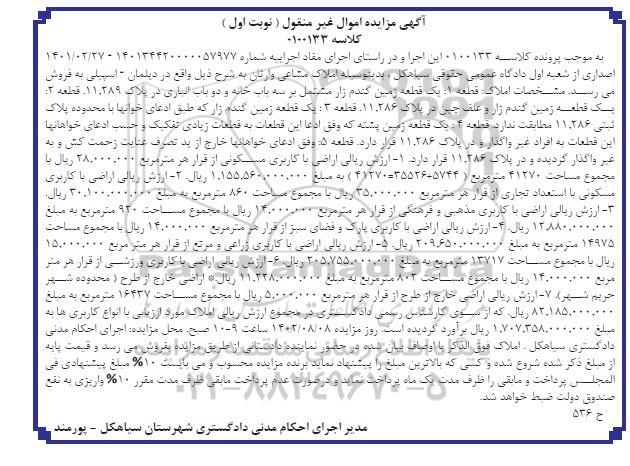 آگهی مزایده اموال غیر منقول ( نوبت اول )
کلاسه ۰۱۰۰۱۳۳
به موجب پرونده کلاسه ۰۱۰۰۱۳۳ این اجرا و در راستای اجرای مفاد اجراییه شماره ۱۴۰۱۳۴۴۲۰۰۰۰۰۵۷۹۷۷ - ۱۴۰۱/۰۲/۲۷
اصداری از شعبه اول دادگاه عمومی حقوقی سیاهکل ، بدینوسیله املاک مشاعی وارثان به شرح ذیل واقع در دیلمان - اسپیلی به فروش
می رسد. مشخصات املاک: قطعه ۱: یک قطعه زمین گندم زار مشتمل بر سه باب خانه و دو باب انباری در پلاک ۱۱.۲۸۹. قطعه ۲:
یک قطعه زمین گندم زار و علف چین در پلاک ۱۱.۲۸۶. قطعه ۳ : یک قطعه زمین گندم زار که طبق ادعای خوانها با محدوده پلاک
ثبتی ۱۱.۲۸۶ مطابقت ندارد. قطعه ۴ : یک قطعه زمین پشته که وفق ادعا این قطعات به قطعات زیادی تفکیک و حسب ادعای خواهانها
این قطعات به افراد غیر واگذار و در پلاک ۱۱.۲۸۶ قرار دارد. قطعه ۵: وفق ادعای خواهانها خارج از ید تصرف عنایت زحمت کش و به
غیر واگذار گردیده و در پلاک ۱۱.۲۸۶ قرار دارد. ۱- ارزش ریالی اراضی با کاربری مسکونی از قرار هر مترمربع ۲۸.۰۰۰.۰۰۰ ریال با
مجموع مساحت ۴۱۲۷۰ مترمربع ( ۵۷۴۴+۳۵۵۲۶=۴۱۲۷۰ ) به مبلغ ۱.۱۵۵.۵۶۰.۰۰۰.۰۰۰ ریال. ۲- ارزش ریالی اراضی با کاربری
مسکونی با استعداد تجاری از قرار هر مترمربع ۳۵.۰۰۰.۰۰۰ ریال با مجموع مساحت ۸۶۰ مترمربع به مبلغ ۳۰.۱۰۰.۰۰۰.۰۰۰ ریال.
۳- ارزش ریالی اراضی با کاربری مذهبی و فرهنگی از قرار هر مترمربع ۱۴.۰۰۰.۰۰۰ ریال با مجموع مساحت ۹۲۰ مترمربع به مبلغ
۱۲.۸۸۰.۰۰۰.۰۰۰ ریال. ۴- ارزش ریالی اراضی با کاربری پارک و فضای سبز از قرار هر مترمربع ۱۴.۰۰۰.۰۰۰ ریال با مجموع مساحت
۱۴۹۷۵ مترمربع به مبلغ ۲۰۹.۶۵۰.۰۰۰.۰۰۰ ریال. ۵- ارزش ریالی اراضی با کاربری زراعی و مرتع از قرار هر متر مربع ۱۵.۰۰۰.۰۰۰
ریال با مجموع مساحت ۱۳۷۱۷ مترمربع به مبلغ ۲۰۵.۷۵۵.۰۰۰.۰۰۰ ریال. ۶- ارزش ریالی اراضی با کاربری ورزشی از قرار هر متر
مربع ۱۴.۰۰۰.۰۰۰ ریال با مجموع مساحت ۸۰۲ مترمربع به مبلغ ۱۱.۲۲۸.۰۰۰.۰۰۰ ریال.* اراضی خارج از طرح ( محدوده شهر
حریم شهر). ۷- ارزش ریالی اراضی خارج از طرح از قرار هر مترمربع ۵.۰۰۰.۰۰۰ ریال با مجموع مساحت ۱۶۴۳۷ مترمربع به مبلغ
۸۲.۱۸۵.۰۰۰.۰۰۰ ریال. که از سوی کارشناس رسمی دادگستری در مجموع ارزش ریالی املاک مورد ارزیابی با انواع کاربری ها به
مبلغ ۱.۷۰۷.۳۵۸.۰۰۰.۰۰۰ ریال برآورد گردیده است. روز مزایده ۱۴۰۲/۰۸/۰۸ ساعت ۹-۱۰ صبح. محل مزایده: اجرای احکام مدنی
دادگستری سیاهکل . املاک فوق الذکر با اوصاف بیان شده در حضور نماینده دادستانی از طریق مزایده بفروش می رسد و قیمت پایه
از مبلغ ذکر شده شروع شده و کسی که بالاترین مبلغ را پیشنهاد نماید برنده مزایده محسوب و می بایست ۱۰% مبلغ پیشنهادی فی
المجلس پرداخت و مابقی را ظرف مدت یک ماه پرداخت نماید و درصورت عدم پرداخت مابقی ظرف مدت مقرر ۱۰% واریزی به نفع
صندوق دولت ضبط خواهد شد.
ح ۵۳۶
مدیر اجرای احکام مدنی دادگستری شهرستان سیاهکل - پورمند
ParsNamadData
۰۲۱-۸۸۳۴۹۶۷۰-۵